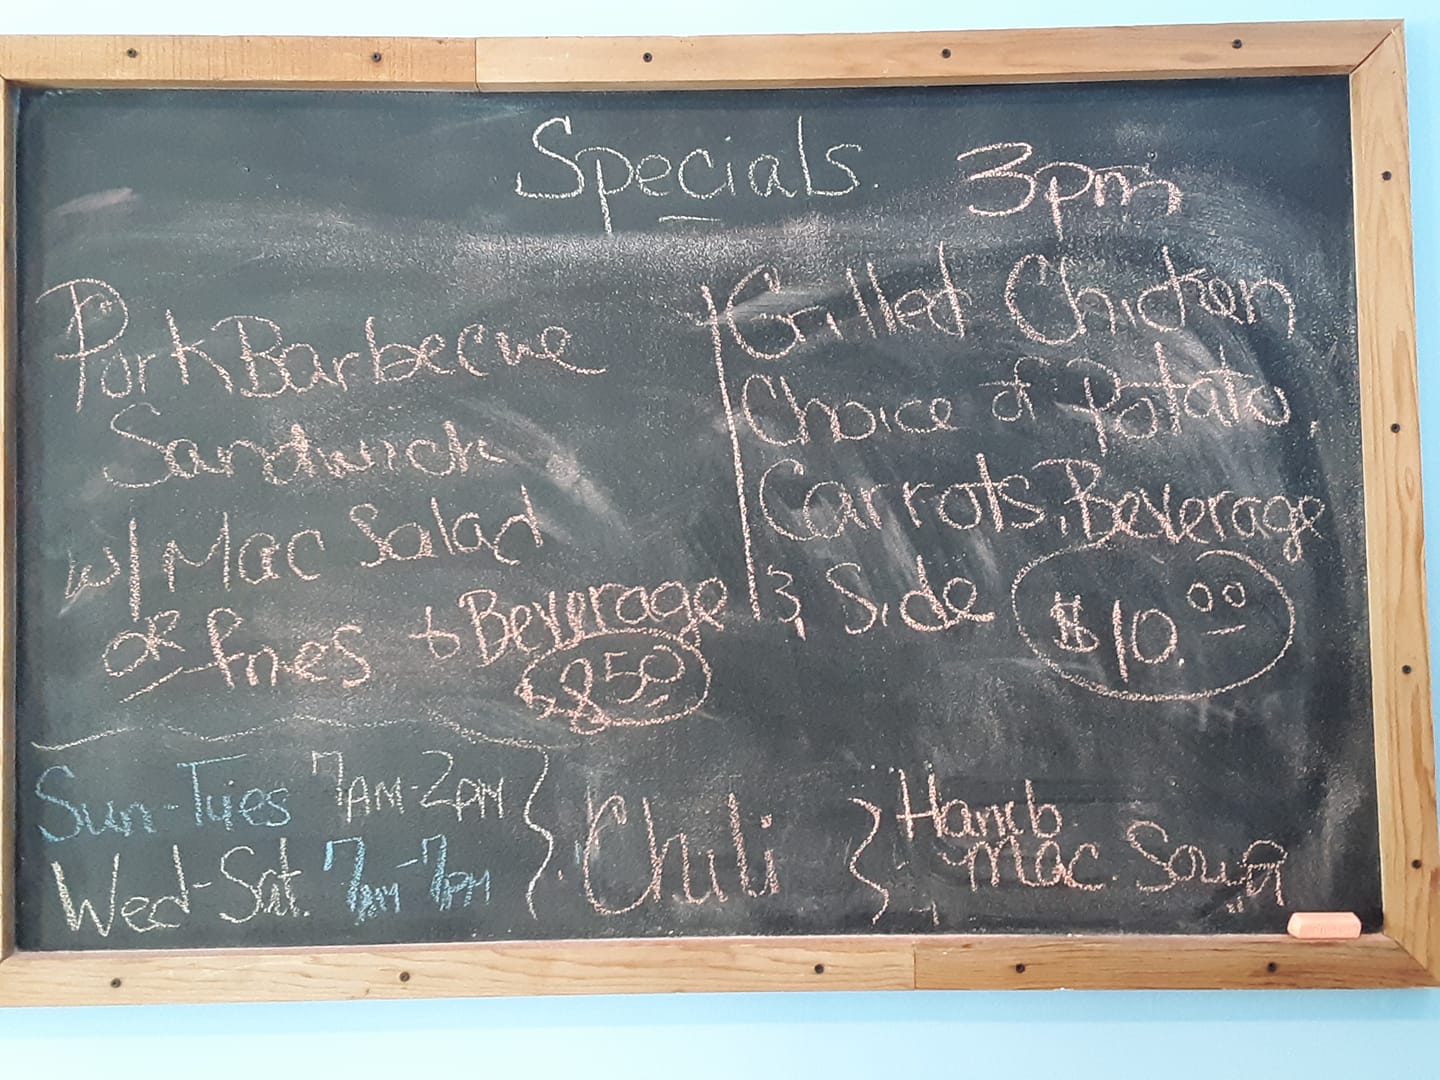 Specials.
3pm
Pork Barbecue
Sandwich
w/ Mac Salad
or fries & Beverage
$8.50
Grilled Chicken
Choice of Potato,
Carrots, Beverage
& Side $10.00
Sun-Tues 7AM-2PM
Wed-Sat. 7AM-7PM
Chili
Hamb
Mac. Soup